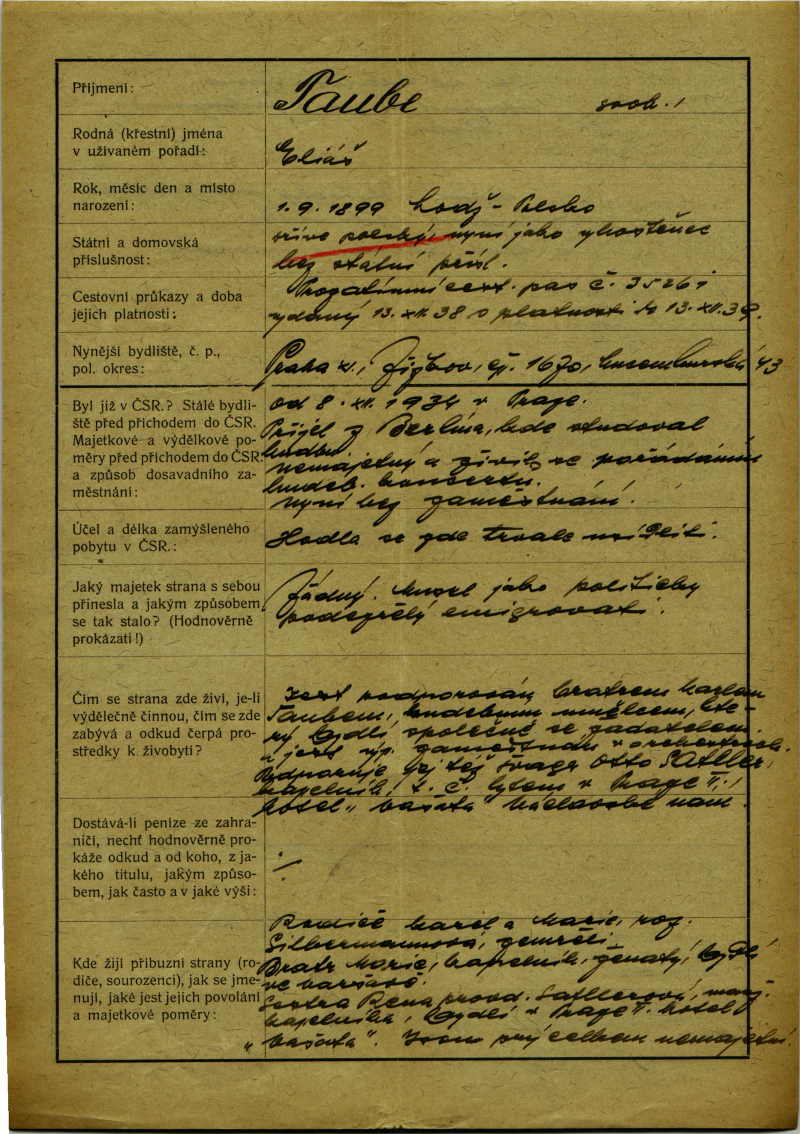 Příjmení: Taube svob. 1
Rodná (křestní) jména
v užívaném pořadí: Eliáš
Rok, měsíc den a místo
narození: 1.9.1899 Lodž - Polsko
Státní a domovská
příslušnost: dříve polský, nyní jako vyhoštěnec
bez státní přísl.
Cestovní průkazy a doba
jejich platnosti: cest. pas č. 35261
vydaný 13.XII.38 s platností do 13.XII.39.
Nynější bydliště, č. p.,
pol. okres: Praha XI., Žižkov, čp. 1670, Lucemburská 43
Byl již v ČSR.? Stálé bydli-
ště před příchodem do ČSR.
Majetkové a výdělkové po-
měry před příchodem do ČSR.
a způsob dosavadního za-
městnání:
od 8.XII.1934 v Praze.
Přijel z Berlína, kde studoval
hudbu.
nemajetný a živil se pořádáním
hudeb. koncertů.
nyní bez zaměstnání.
Účel a délka zamýšleného
pobytu v ČSR.: Hodlá se zde trvale usíditi.
Jaký majetek strana s sebou
přinesla a jakým způsobem
se tak stalo? (Hodnověrně
prokázati!)
Žádný. Musel jako politicky
podezřelý emigrovat.
Čím se strana zde živí, je-li
výdělečně činnou, čím se zde
zabývá a odkud čerpá pro-
středky k živobytí?
Jest podporován bratrem
Taubem, hudebním umělcem, kte-
rý bydlí společně se žadatelem.
a jest zaměstnán v orchestrech.
Podporuje jej též švagr Otto Sattler,
kapelník, t. č. bytem v Praze II.,
hotel "Bašta" Václavské nám.
Dostává-li peníze ze zahra-
ničí, nechť hodnověrně pro-
káže odkud a od koho, z ja-
kého titulu, jakým způso-
bem, jak často a v jaké výši:
./.
Kde žijí příbuzní strany (ro-
diče, sourozenci), jak se jme-
nují, jaké jest jejich povolání
a majetkové poměry:
Rodiče Karel a Marie, roz.
Silbermannová, zemřeli.
Bratr kapelník, ženatý, bydlí
ve Varšavě.
Sestra provd. Sattlerová, manž.
kapelníka, bydlí v Praze II. hotel
"Bašta". Jsou prý celkem nemajetní.